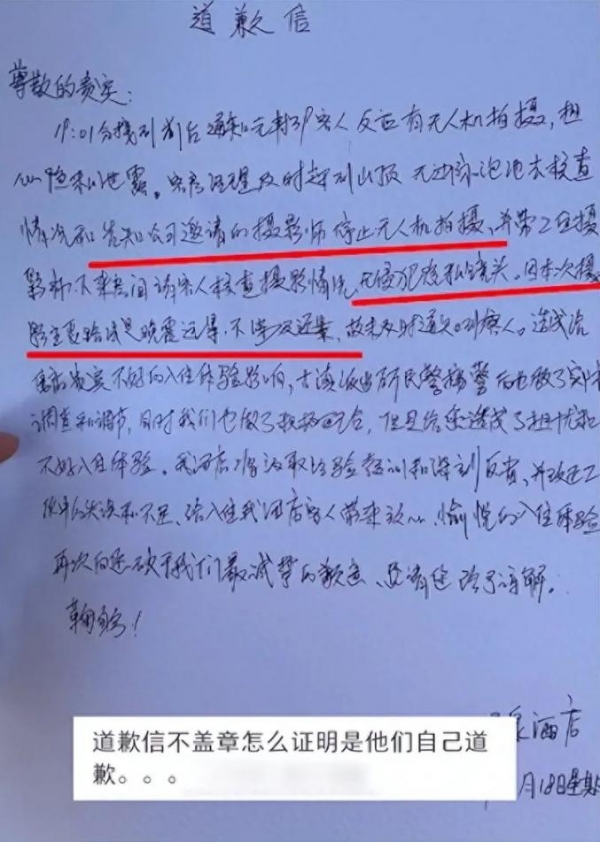 道歉信
尊敬的贵宾:
19:01分接到前台通知元射39客人反应有无人机拍摄,担
心隐私泄露。客房经理及时赶到山顶无边泳池去核查
情况和告知公司邀请的摄影师停止无人机拍摄,并带工程摄
影师下来房间请客人核查摄影情况无侵犯隐私镜头。因本次摄
影主要拍摄是晚霞远景,不涉及近景,故未及时通知到客人。造成给
贵宾不好的入住体验影响,派出所民警接警后也做了实
调查和调节,同时我们也做了致歉,但是给您造成了担忧和
不好入住体验。我酒店将汲取经验教训和深刻反省,并改进工
作中的失误和不足,给入住我酒店客人带来放心、愉悦的入住体验
再次向您致于我们最诚挚的歉意,恳请您给予谅解。
泉酒店
月18日星期
道歉信不盖章怎么证明是他们自己道
歉。。。